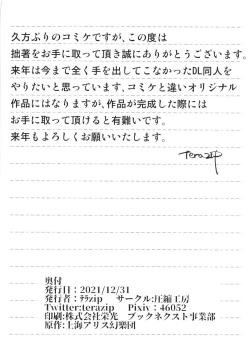 久方ぶりのコミケですが、この度は
拙著をお手に取って頂き誠にありがとうございます。
来年は今まで全く手を出してこなかったDL同人を
やりたいと思っています、コミケと違いオリジナル
作品にはなりますが、作品が完成した際には
お手に取って頂けると有難いです。
来年もよろしくお願いいたします。
Terazip
奥付
発行日：2021/12/31
発行者：ﾃﾗzip　サークル:圧縮工房
Twitter:terazip　Pixiv：46052
印刷:株式会社栄光　ブックネクスト事業部
原作:上海アリス幻樂団